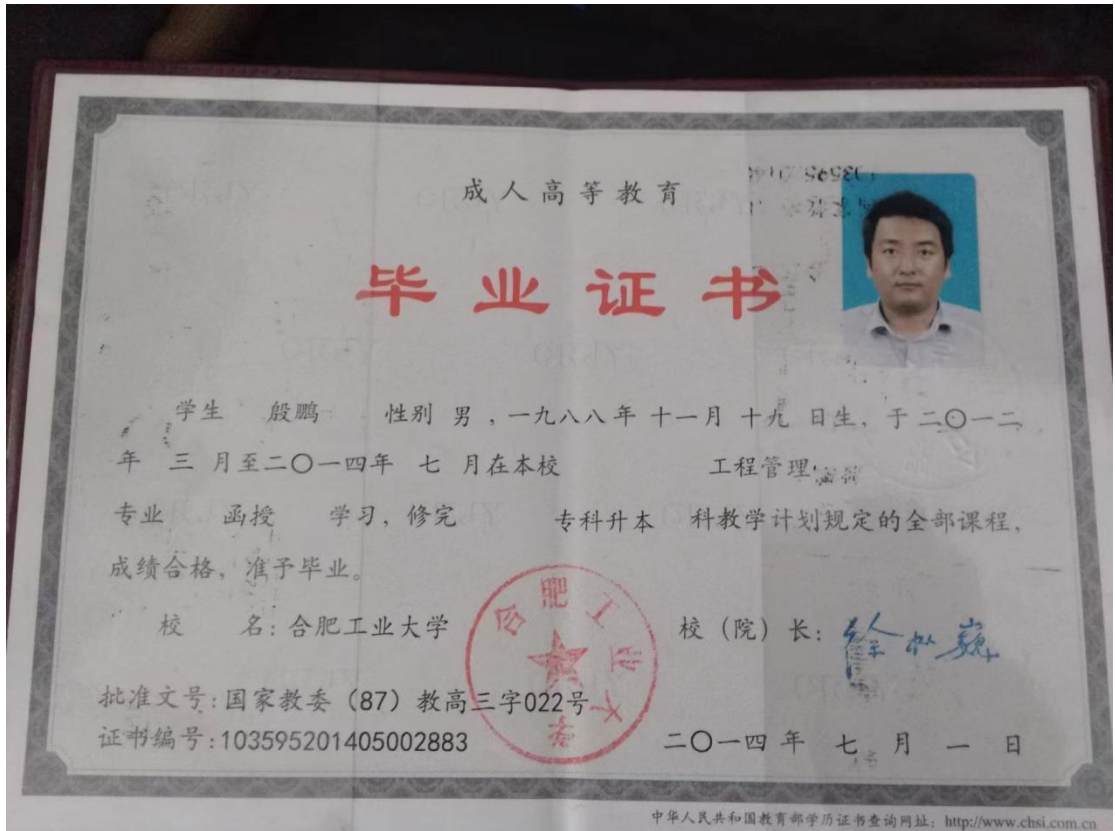 成人高等教育
毕业证书
学生 殷鹏 性别 男，一九八八年 十一月 十九 日生，于二〇一二
年 三 月至二〇一四年 七 月在本校 工程管理
专业 函授 学习，修完 专科升本 科教学计划规定的全部课程，
成绩合格，准予毕业。
校 名：合肥工业大学
合肥工业大学
校（院）长：徐枞巍
批准文号：国家教委（87）教高三字022号
证书编号：103595201405002883
二〇一四 年 七 月 一 日
中华人民共和国教育部学历证书查询网址：http://www.chsi.com.cn